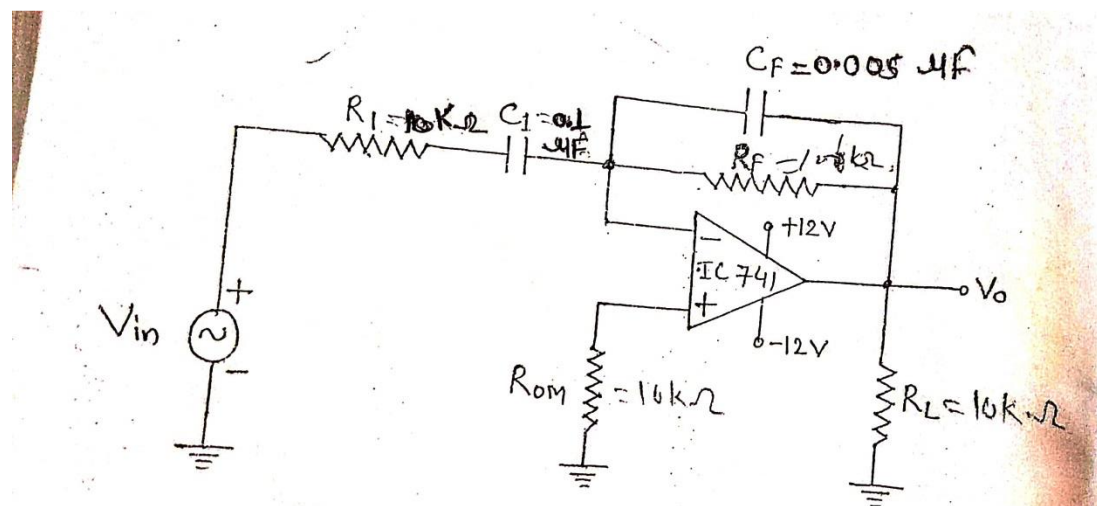 C_F = 0.005 µF
R_1 = 10 KΩ C_1 = 0.1
µF
R_F =
+12V
−
IC 741
+
Vo
Vin
+
−
−12V
R_OM = 10kΩ
R_L = 10kΩ